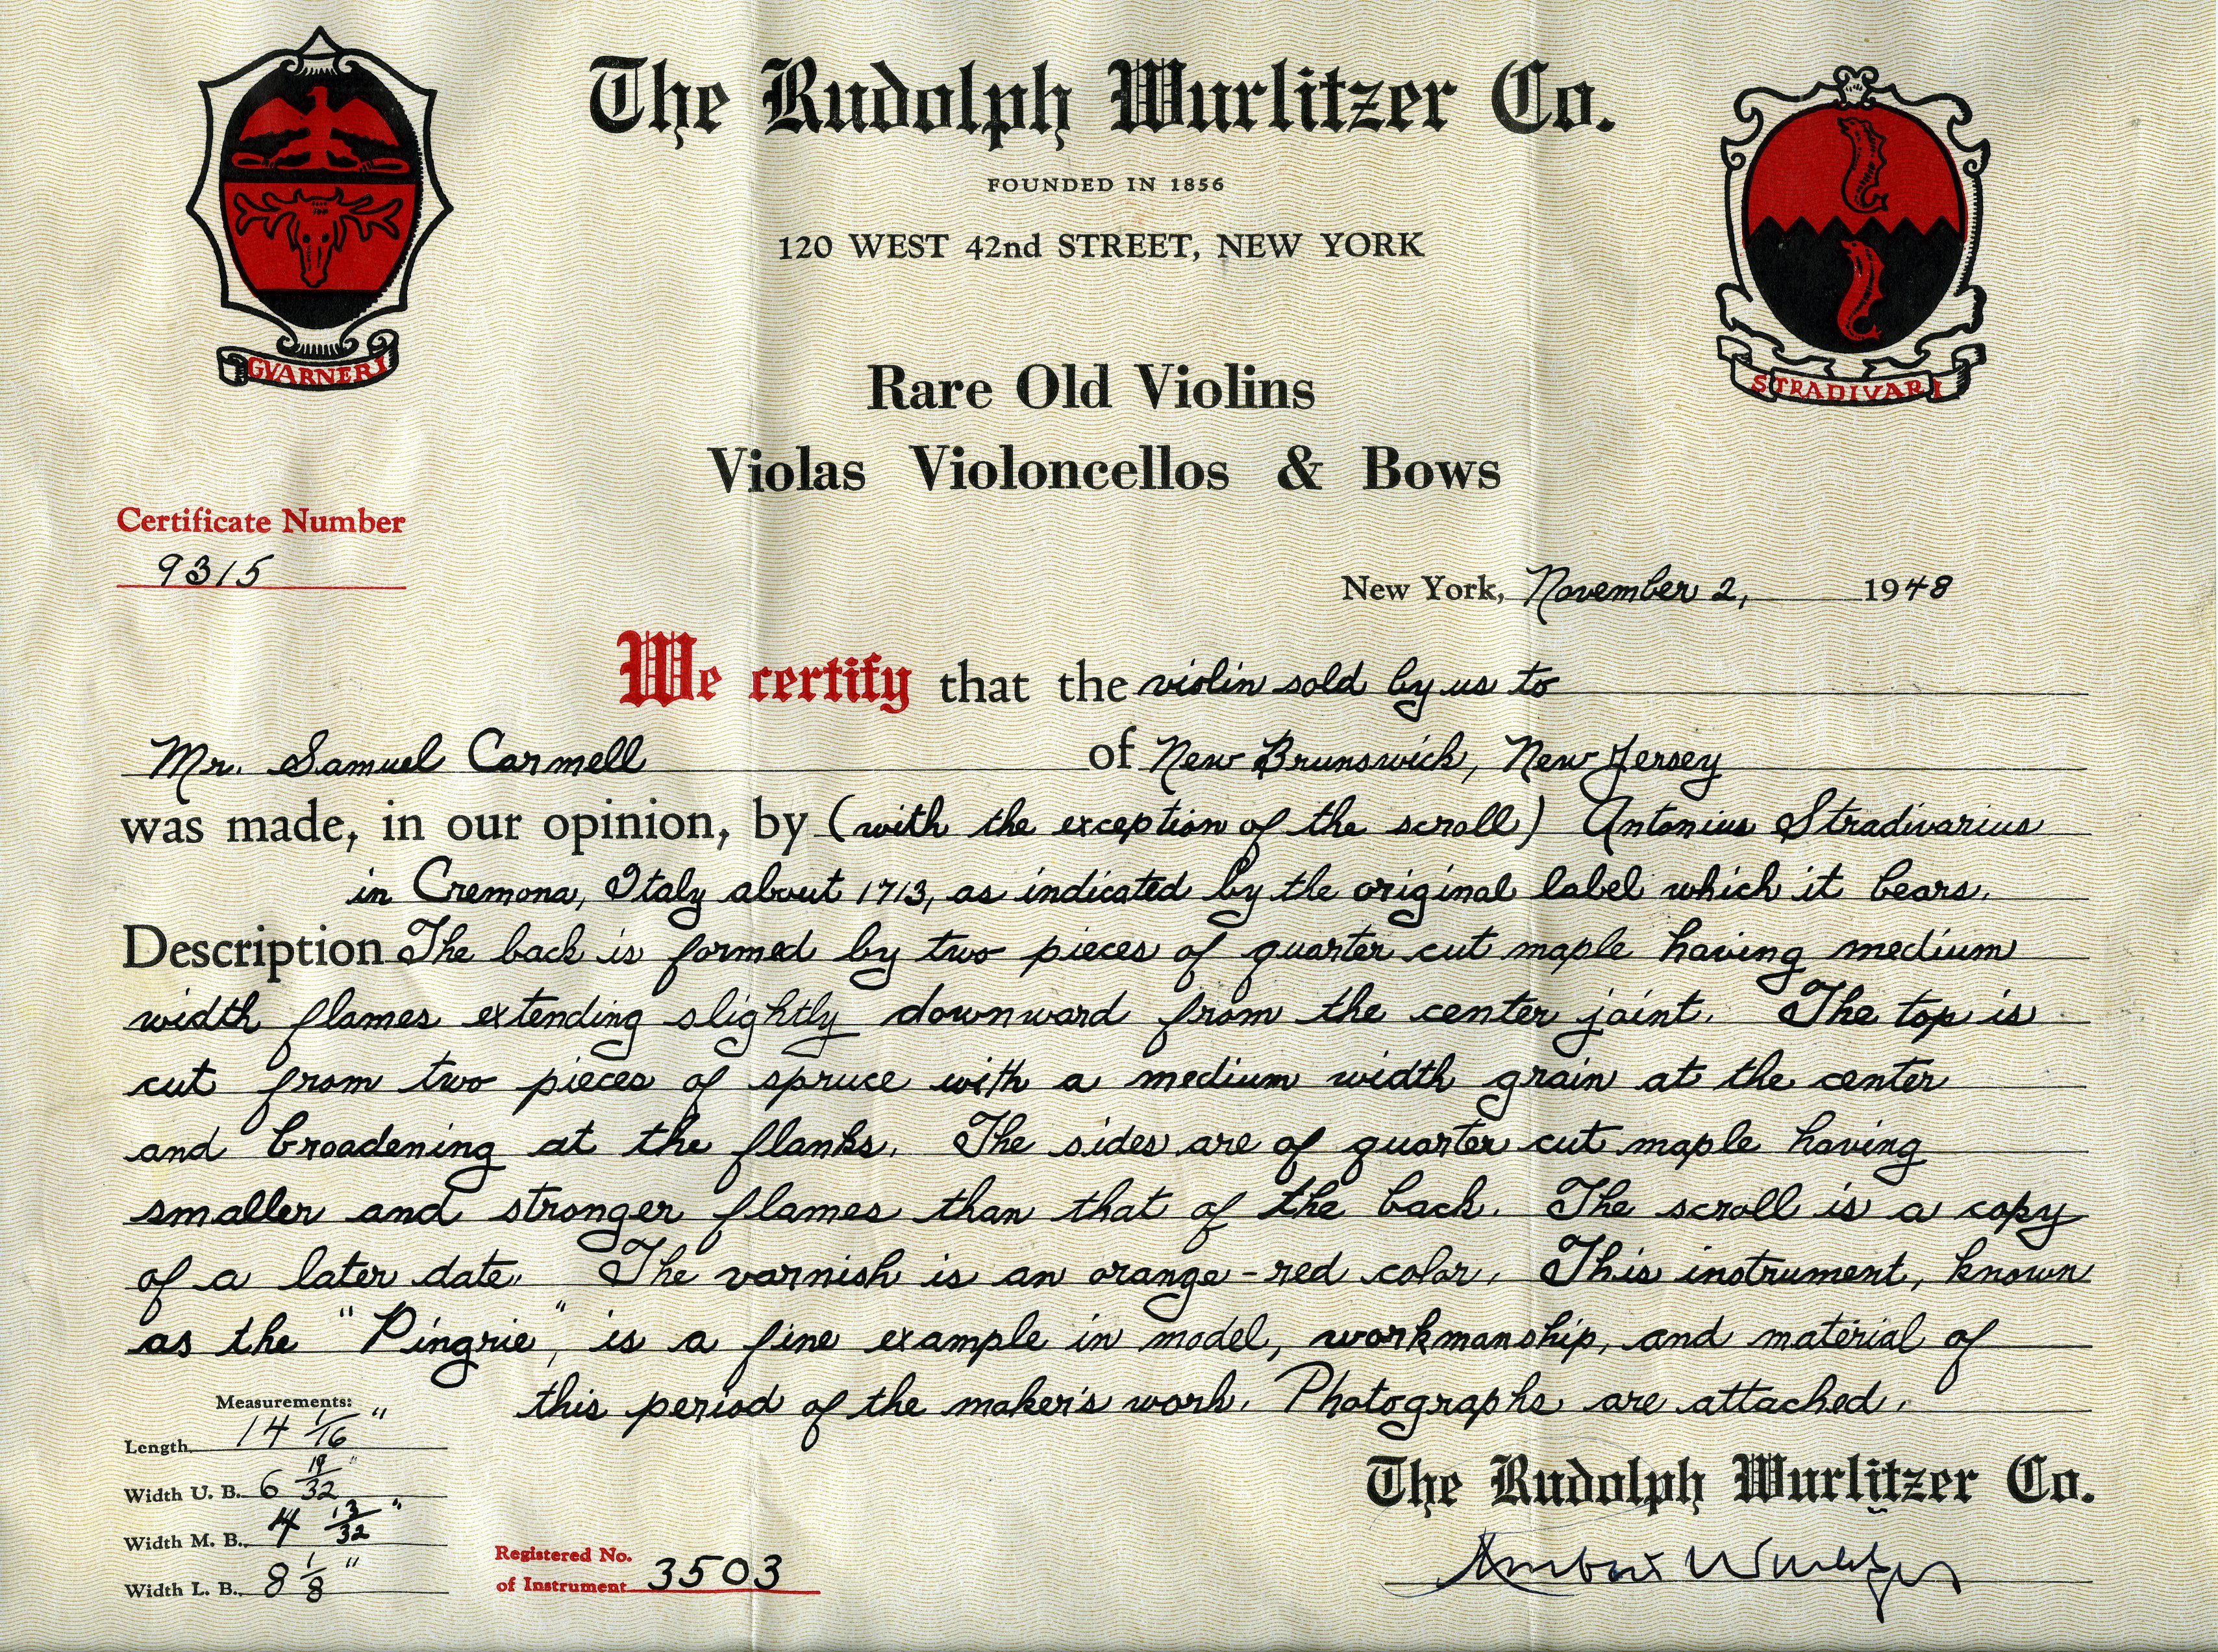 The Rudolph Wurlitzer Co.
FOUNDED IN 1856
120 WEST 42nd STREET, NEW YORK
GVARNERI
STRADIVARI
Rare Old Violins
Violas Violoncellos & Bows
Certificate Number
9315
New York, November 2, 1948
We certify that the violin sold by us to
Mr. Samuel Carmell of New Brunswick, New Jersey
was made, in our opinion, by (with the exception of the scroll) Antonius Stradivarius
in Cremona, Italy about 1713, as indicated by the original label which it bears.
Description The back is formed by two pieces of quarter cut maple having medium
width flames extending slightly downward from the center joint. The top is
cut from two pieces of spruce with a medium width grain at the center
and broadening at the flanks. The sides are of quarter cut maple having
smaller and stronger flames than that of the back. The scroll is a copy
of a later date. The varnish is an orange-red color. This instrument, known
as the "Pingrie", is a fine example in model, workmanship, and material of
this period of the maker's work. Photographs are attached.
Measurements:
Length 14 1/16"
Width U. B. 6 19/32"
Width M. B. 4 13/32"
Width L. B. 8 1/8"
Registered No.
of Instrument 3503
The Rudolph Wurlitzer Co.
Rembert Wurlitzer